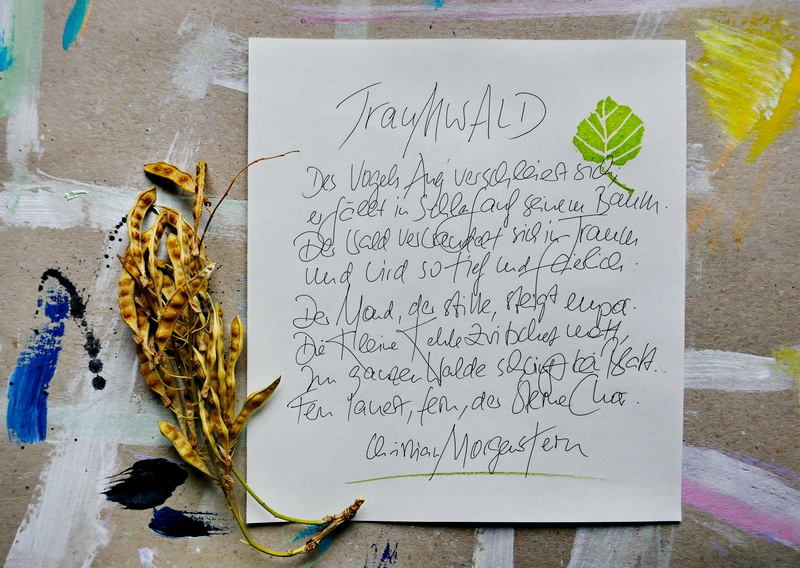 TrauMWALD
Des Vogels Aug verschleiert sich,
er fällt in Schlaf auf seinem Baum.
Der Wald verwandelt sich in Traum
und wird so tief und feierlich.
Der Mond, der stille, steigt empor.
Die kleine Kehle zwitschert matt,
Im ganzen Walde schwingt kein Blatt.
Fern läutet, fern, der Sterne Chor.
Christian Morgenstern